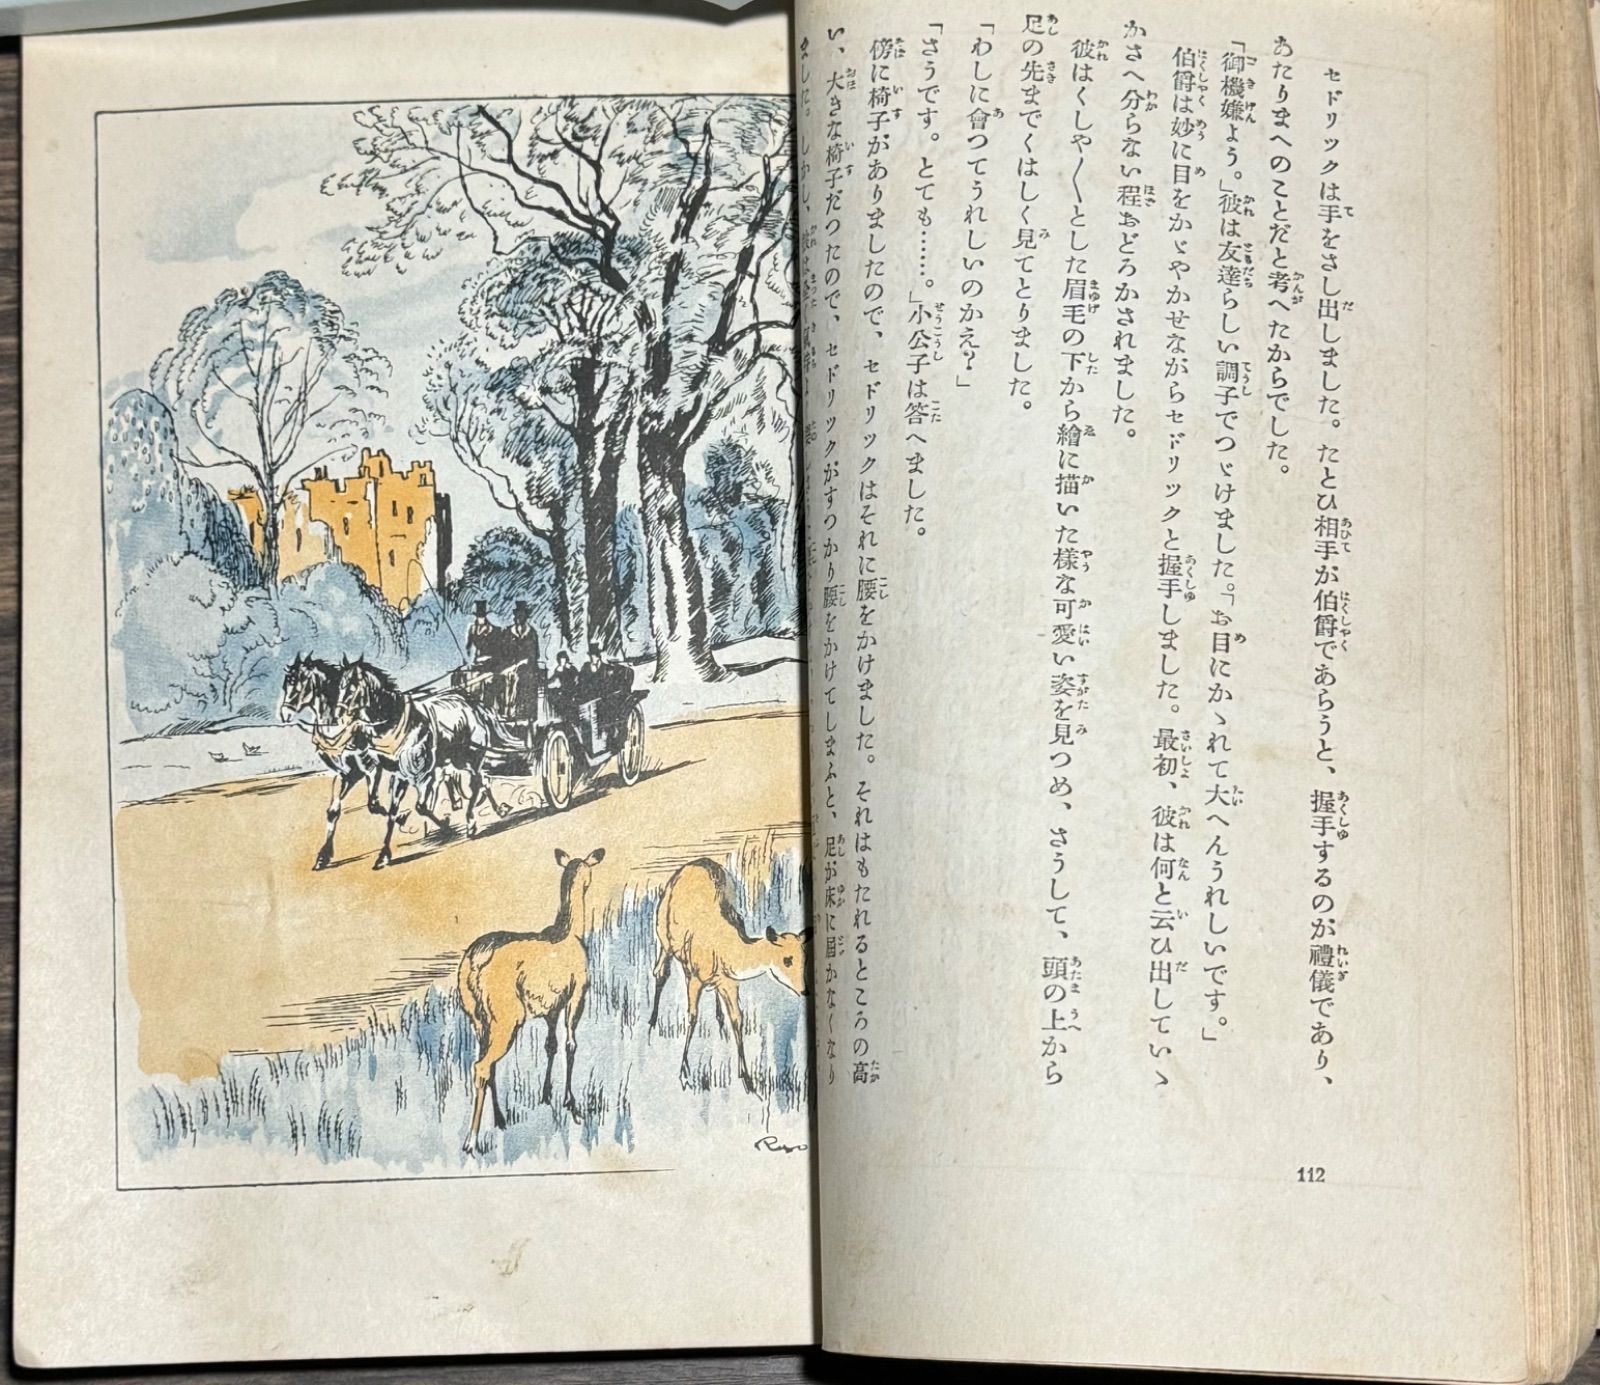 セドリックは手をさし出しました。たとひ相手が伯爵であらうと、握手するのが禮儀であり、
あたりまへのことだと考へたからでした。
「御機嫌よう。」彼は友達らしい調子でつゞけました。「お目にかゝれて大へんうれしいです。」
伯爵は妙に目をかゞやかせながらセドリックと握手しました。最初、彼は何と云ひ出していゝ
かさへ分らない程おどろかされました。
彼はくしや〳〵とした眉毛の下から繪に描いた樣な可愛い姿を見つめ、さうして、頭の上から
足の先までくはしく見てとりました。
「わしに會つてうれしいのかえ？」
「さうです。とても……。」小公子は答へました。
傍に椅子がありましたので、セドリックはそれに腰をかけました。それはもたれるところの高
い、大きな椅子だつたので、セドリックがすつかり腰をかけてしまふと、足が床に屆かなくなり
ました。しかし、彼は
112